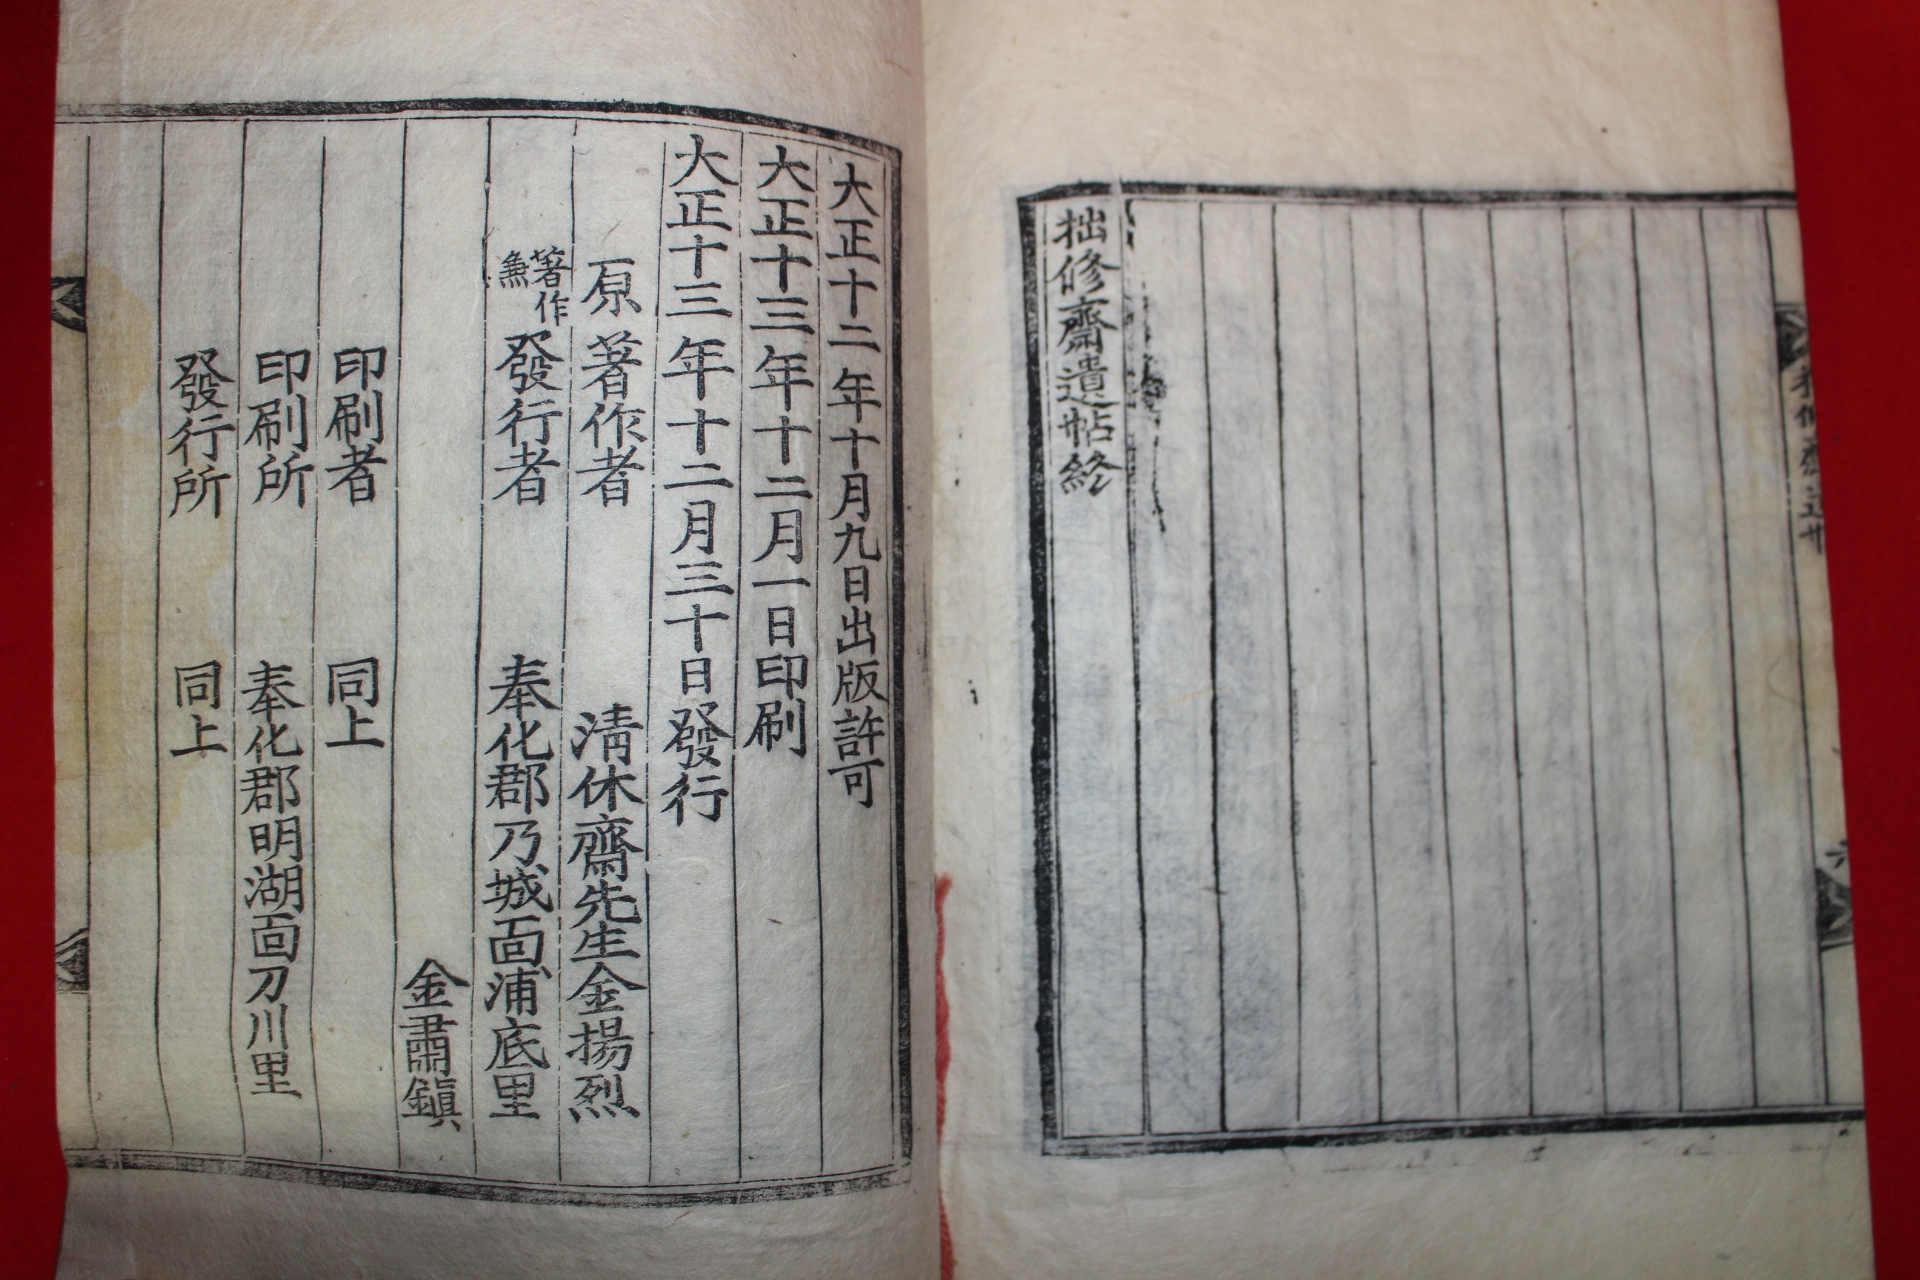 拙修齋遺帖終
大正十二年十月九日出版許可
大正十三年十二月一日印刷
大正十三年十二月三十日發行
原著作者 淸休齋先生金揚烈
著作兼發行者 奉化郡乃城面浦底里
金肅鎭
印刷者 同上
印刷所 奉化郡明湖面刀川里
發行所 同上